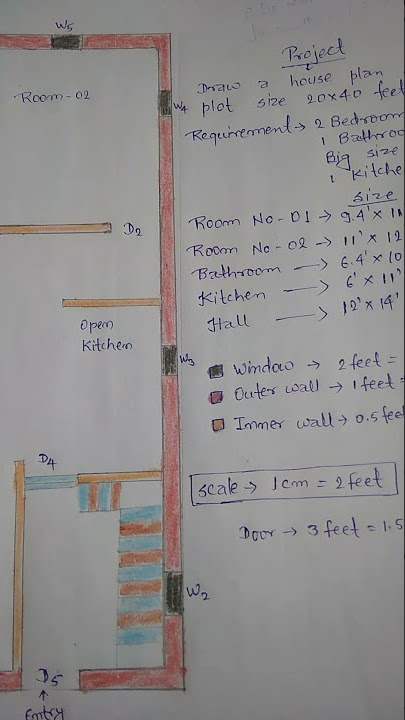 W5
Room-02
W4
D2
Open
Kitchen
W3
D4
W2
D5
Entry
Project
Draw a house plan
plot size 20x40 feet
Requirement → 2 Bedroom
1 Bathroo
Big size
1 Kitche
Size
Room No-01 → 9.4' x 11
Room No-02 → 11' x 12
Bathroom → 6.4' x 10
Kitchen → 6' x 11'
Hall → 12' x 14'
Window → 2 feet =
Outer wall → 1 feet =
Inner wall → 0.5 feet
Scale → 1 cm = 2 feet
Door → 3 feet = 1.5